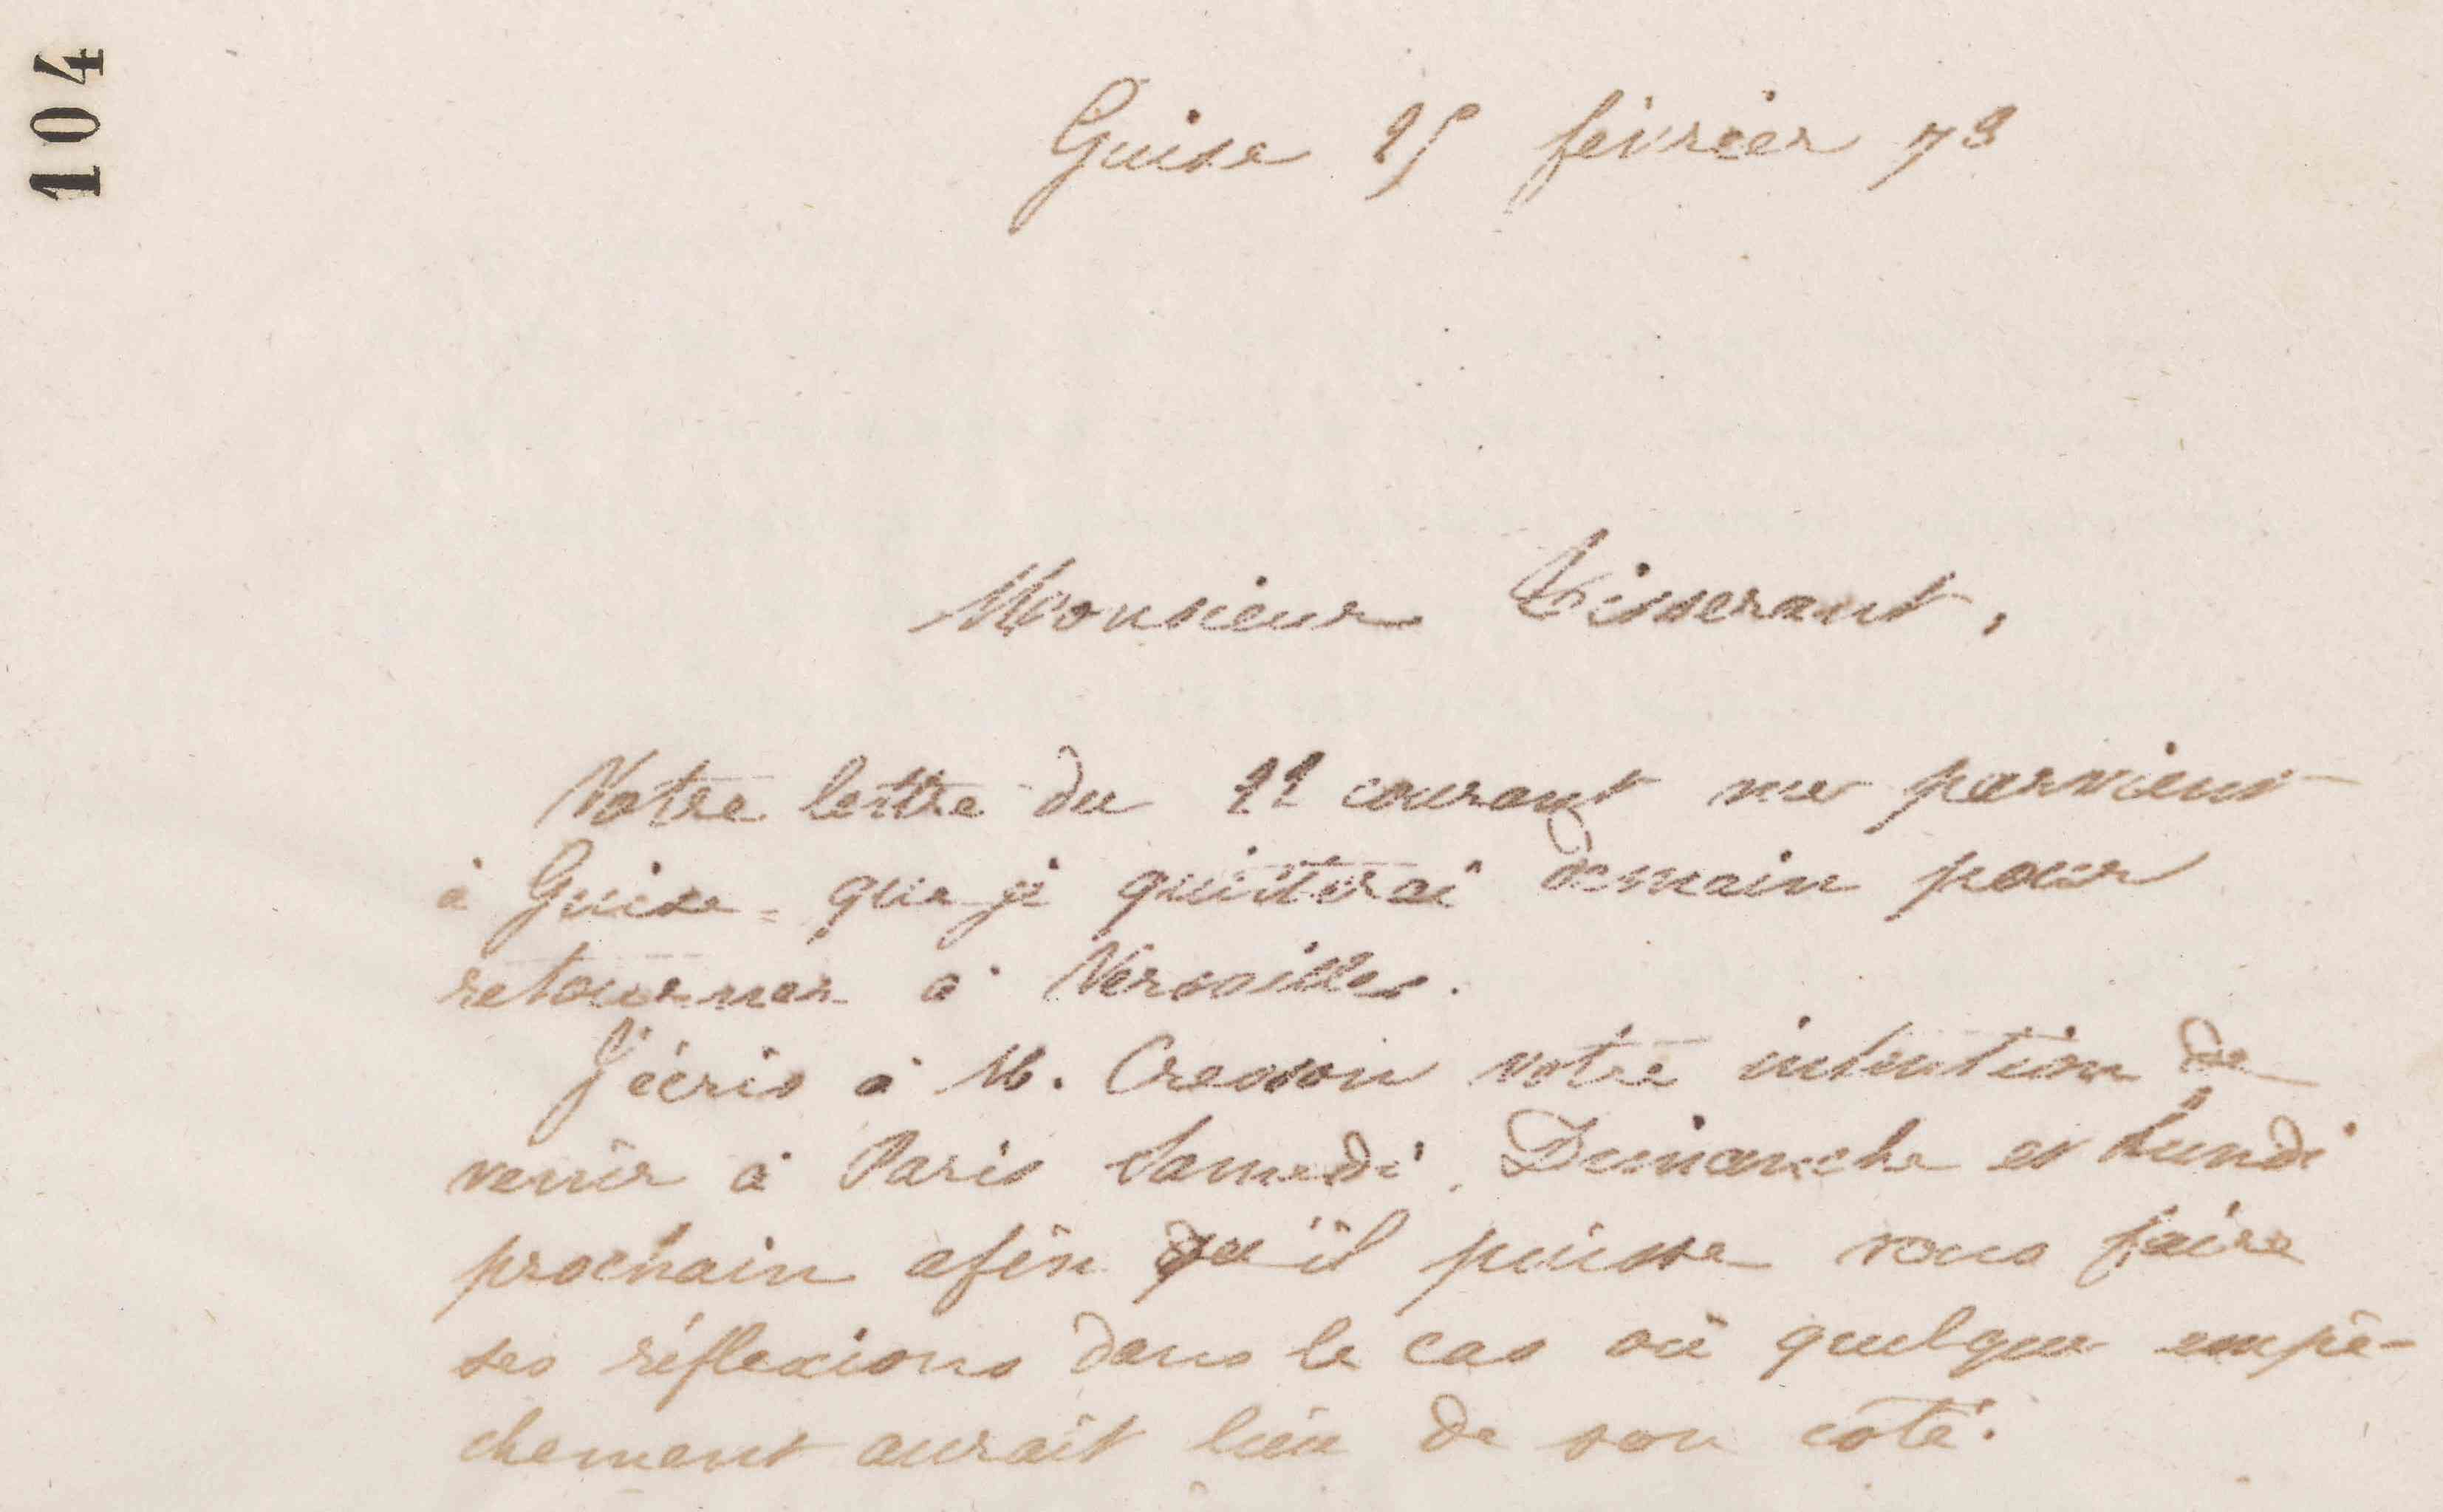 104
Guise 25 février 73
Monsieur Tisserant,
Votre lettre du 22 courant me parvient
à Guise que je quitterai demain pour
retourner à Versailles.
J'écris à M. Cresson votre intention de
venir à Paris Samedi, Dimanche et Lundi
prochain afin qu'il puisse vous faire
ses réflexions dans le cas où quelque empê-
chement aurait lieu de son côté.